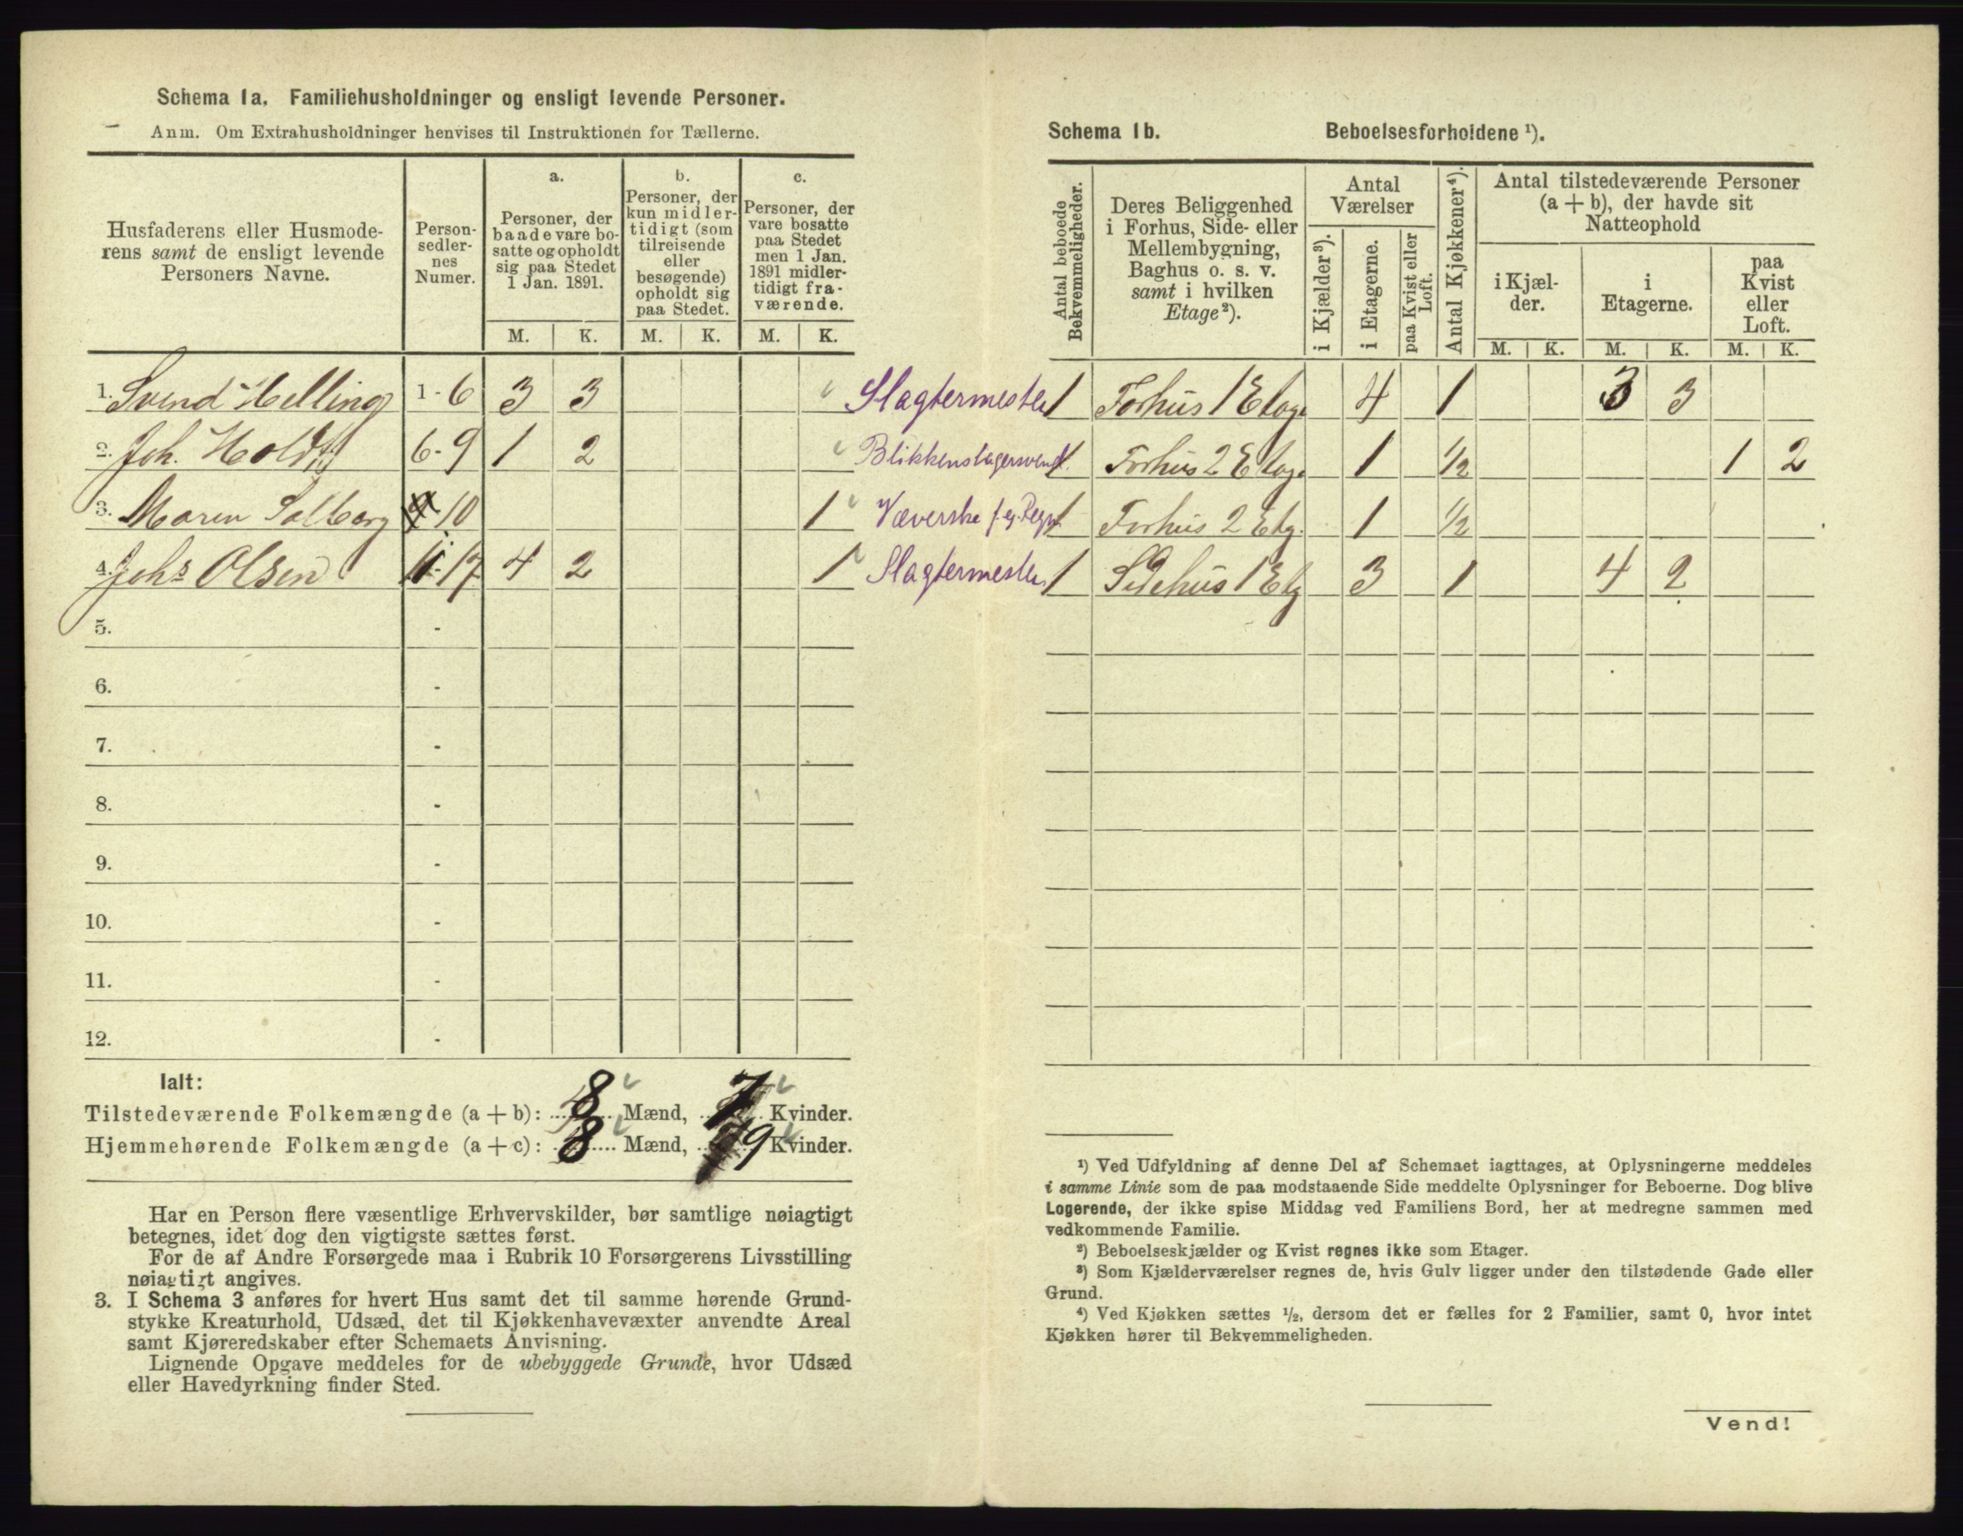 Schema 1a. Familiehusholdninger og ensligt levende Personer.
Anm. Om Extrahusholdninger henvises til Instruktionen for Tællerne.
Husfaderens eller Husmode-
rens samt de ensligt levende
Personers Navne.
Person-
sedler-
nes
Numer.
a.
Personer, der
baade vare bo-
satte og opholdt
sig paa Stedet
1 Jan. 1891.
b.
Personer, der
kun midler-
tidigt (som
tilreisende
eller
besøgende)
opholdt sig
paa Stedet.
c.
Personer, der
vare bosatte
paa Stedet
men 1 Jan.
1891 midler-
tidigt fra-
værende.
M. K. M. K. M. K.
1. Svend Helling 1-6 3 3 Slagtermester
2. Joh. Holdt 6-9 1 2 Blikkenslagersvend
3. Maren Solberg 10 1 Væverske f. eg. Regn.
4. Johs Olsen 11-17 4 2 1 Slagtermester
5. -
6. -
7. -
8. -
9. -
10. -
11. -
12. -
Ialt:
Tilstedeværende Folkemængde (a + b): 8 Mænd, 7 Kvinder.
Hjemmehørende Folkemængde (a + c): 8 Mænd, 9 Kvinder.
Har en Person flere væsentlige Erhvervskilder, bør samtlige nøiagtigt
betegnes, idet dog den vigtigste sættes først.
For de af Andre Forsørgede maa i Rubrik 10 Forsørgerens Livsstilling
nøiagtigt angives.
3. I Schema 3 anføres for hvert Hus samt det til samme hørende Grund-
stykke Kreaturhold, Udsæd, det til Kjøkkenhavevæxter anvendte Areal
samt Kjøreredskaber efter Schemaets Anvisning.
Lignende Opgave meddeles for de ubebyggede Grunde, hvor Udsæd
eller Havedyrkning finder Sted.
Schema 1b. Beboelsesforholdene ¹).
Antal beboede
Bekvemmeligheder.
Deres Beliggenhed
i Forhus, Side- eller
Mellembygning,
Baghus o. s. v.
samt i hvilken
Etage²).
Antal
Værelser
i Kjælder³).
i Etagerne.
paa Kvist eller
Loft.
Antal Kjøkkener⁴).
Antal tilstedeværende Personer
(a + b), der havde sit
Natteophold
i Kjæl-
der.
i
Etagerne.
paa
Kvist
eller
Loft.
M. K. M. K. M. K.
1 Forhus 1 Etage 4 1 3 3
1 Forhus 2 Etage 1 ½ 1 2
1 Forhus 2 Etg. 1 ½
1 Sidehus 1 Etg 3 1 4 2
¹) Ved Udfyldning af denne Del af Schemaet iagttages, at Oplysningerne meddeles
i samme Linie som de paa modstaaende Side meddelte Oplysninger for Beboerne. Dog blive
Logerende, der ikke spise Middag ved Familiens Bord, her at medregne sammen med
vedkommende Familie.
²) Beboelseskjælder og Kvist regnes ikke som Etager.
³) Som Kjælderværelser regnes de, hvis Gulv ligger under den tilstødende Gade eller
Grund.
⁴) Ved Kjøkken sættes ½, dersom det er fælles for 2 Familier, samt 0, hvor intet
Kjøkken hører til Bekvemmeligheden.
Vend!